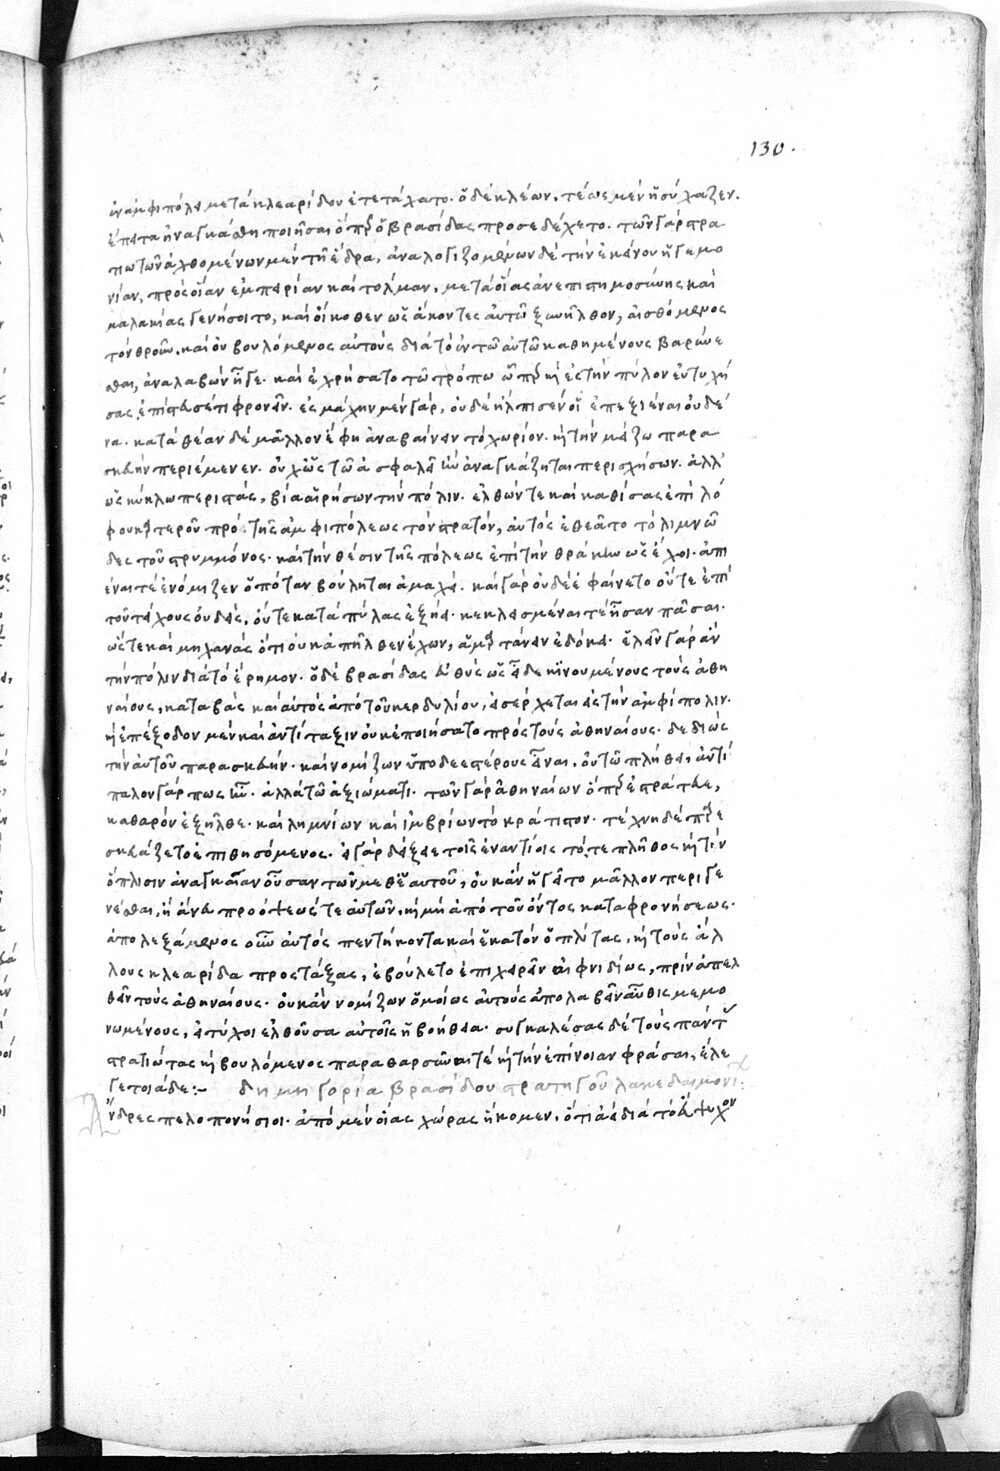 130.
ἐν ἀμφιπόλει μετὰ κλεαρίδου ἐτετάχατο. ὁ δὲ κλέων, τέως μὲν ἡσύχαζεν.
ἔπειτα ἠναγκάσθη ποιῆσαι ὅπερ ὁ βρασίδας προσεδέχετο. τῶν γὰρ στρα
τιωτῶν ἀχθομένων μὲν τῇ ἕδρα, ἀναλογιζομένων δὲ τὴν ἐκείνου ἡγεμο
νίαν, πρὸς οἵαν ἐμπειρίαν καὶ τόλμαν, μετὰ οἵας ἀνεπιστημοσύνης καὶ
μαλακίας γενήσοιτο, καὶ οἴκοθεν ὡς ἄκοντες αὐτῶ ξυνῆλθον, αἰσθόμενος
τὸν θροῦν. καὶ οὐ βουλόμενος αὐτοὺς διὰ τὸ ἐν τῶ αὐτῶ καθημένους βαρύνε
σθαι, ἀναλαβὼν ἦγε. καὶ ἐχρήσατο τῶ τρόπω ὧπερ καὶ ἐς τὴν πύλον εὐτυχή
σας ἐπίστευσέ τι φρονεῖν. ἐς μάχην μὲν γὰρ, οὐδὲ ἤλπισέν οἱ ἐπεξιέναι οὐδέ
να. κατὰ θέαν δὲ μᾶλλον ἔφη ἀναβαίνειν τὸ χωρίον. καὶ τὴν μείζω παρα
σκευὴν περιέμενεν. οὐχ ὡς τῶ ἀσφαλεῖ ἢν ἀναγκάζηται περισχήσων. ἀλλ'
ὡς κύκλω περιστὰς, βία αἱρήσων τὴν πόλιν. ἐλθών τε καὶ καθίσας ἐπὶ λό
φου καρτεροῦ πρὸ τῆς ἀμφιπόλεως τὸν στρατὸν, αὐτὸς ἐθεᾶτο τὸ λιμνῶ
δες τοῦ στρυμμόνος. καὶ τὴν θέσιν τῆς πόλεως ἐπὶ τὴν θράκην ὡς ἔχοι. ἀπι
έναι τὲ ἐνόμιζεν ὁπόταν βούληται ἀμαχεί. καὶ γὰρ οὐδὲ ἐφαίνετο οὔτε ἐπὶ
τοῦ τείχους οὐδεὶς, οὔτε κατὰ πύλας ἐξήει. κεκλεισμέναι τὲ ἦσαν πᾶσαι.
ὥστε καὶ μηχανὰς ὅτι οὐκ ἀπῆλθεν ἔχων, ἁμαρτάνειν ἐδόκει. ἑλεῖν γὰρ ἂν
τὴν πόλιν διὰ τὸ ἔρημον. ὁ δὲ βρασίδας εὐθὺς ὡς εἶδε κινουμένους τοὺς ἀθη
ναίους, καταβὰς καὶ αὐτὸς ἀπὸ τοῦ κερδυλίου, εἰσέρχεται εἰς τὴν ἀμφίπολιν.
καὶ ἐπέξοδον μὲν καὶ ἀντίταξιν οὐκ ἐποιήσατο πρὸς τοὺς ἀθηναίους. δεδιὼς
τὴν αὑτοῦ παρασκευὴν. καὶ νομίζων ὑποδεεστέρους εἶναι, οὐ τῶ πλήθει, ἀντί
παλον γάρ πως ἦν. ἀλλὰ τῶ ἀξιώματι. τῶν γὰρ ἀθηναίων ὅπερ ἐστράτευε,
καθαρὸν ἐξῆλθε. καὶ λημνίων καὶ ἰμβρίων τὸ κράτιστον. τέχνη δὲ παρε
σκευάζετο ἐπιθησόμενος. εἰ γὰρ δείξειε τοῖς ἐναντίοις τό, τε πλῆθος καὶ τὴν
ὅπλισιν ἀναγκαίαν οὖσαν τῶν μεθ' ἑαυτοῦ, οὐκ ἂν ἡγεῖτο μᾶλλον περιγε
νέσθαι, ἢ ἄνευ προόψεώς τε αὐτῶν, καὶ μὴ ἀπὸ τοῦ ὄντος καταφρονήσεως.
ἀπολεξάμενος οὖν αὐτὸς πεντήκοντα καὶ ἑκατὸν ὁπλίτας, καὶ τοὺς ἄλ
λους κλεαρίδα προστάξας, ἐβούλετο ἐπιχειρεῖν αἰφνιδίως, πρὶν ἀπελ
θεῖν τοὺς ἀθηναίους. οὐκ ἂν νομίζων ὁμοίως αὐτοὺς ἀπολαβεῖν αὖθις μεμο
νωμένους, εἰ τύχοι ἐλθοῦσα αὐτοῖς ἡ βοήθεια. συγκαλέσας δὲ τοὺς πάντας
στρατιώτας καὶ βουλόμενος παραθαρσῦναι τὲ καὶ τὴν ἐπίνοιαν φράσαι, ἔλε
γε τοιάδε:– δημηγορία βρασίδου στρατηγοῦ λακεδαιμονίων:
Ἄνδρες πελοπονήσιοι. ἀπὸ μὲν οἵας χώρας ἥκομεν, ὅτι ἀεὶ διὰ τὸ εὔψυχον